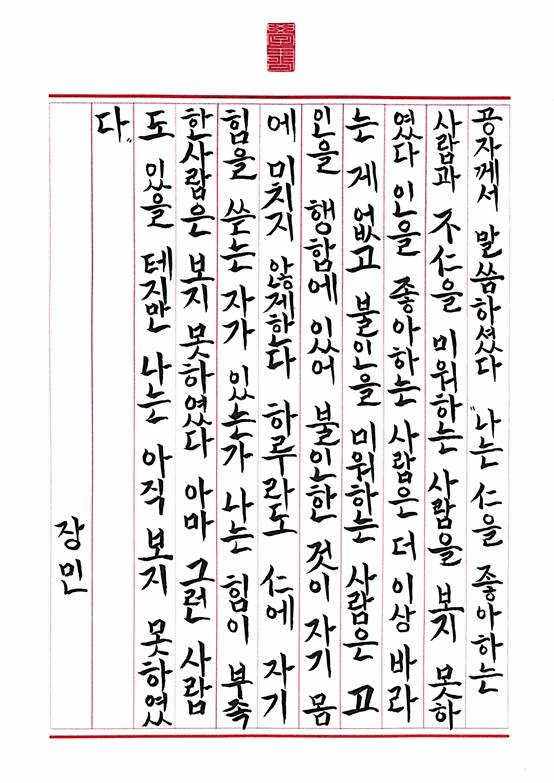 공자께서 말씀하셨다 "나는 仁을 좋아하는
사람과 不仁을 미워하는 사람을 보지 못하
였다 인을 좋아하는 사람은 더 이상 바라
는 게 없고 불인을 미워하는 사람은 그
인을 행함에 있어 불인한 것이 자기 몸
에 미치지 않게한다 하루라도 仁에 자기
힘을 쏟는 자가 있는가 나는 힘이 부족
한사람은 보지 못하였다 아마 그런 사람
도 있을 테지만 나는 아직 보지 못하였
다"
장민